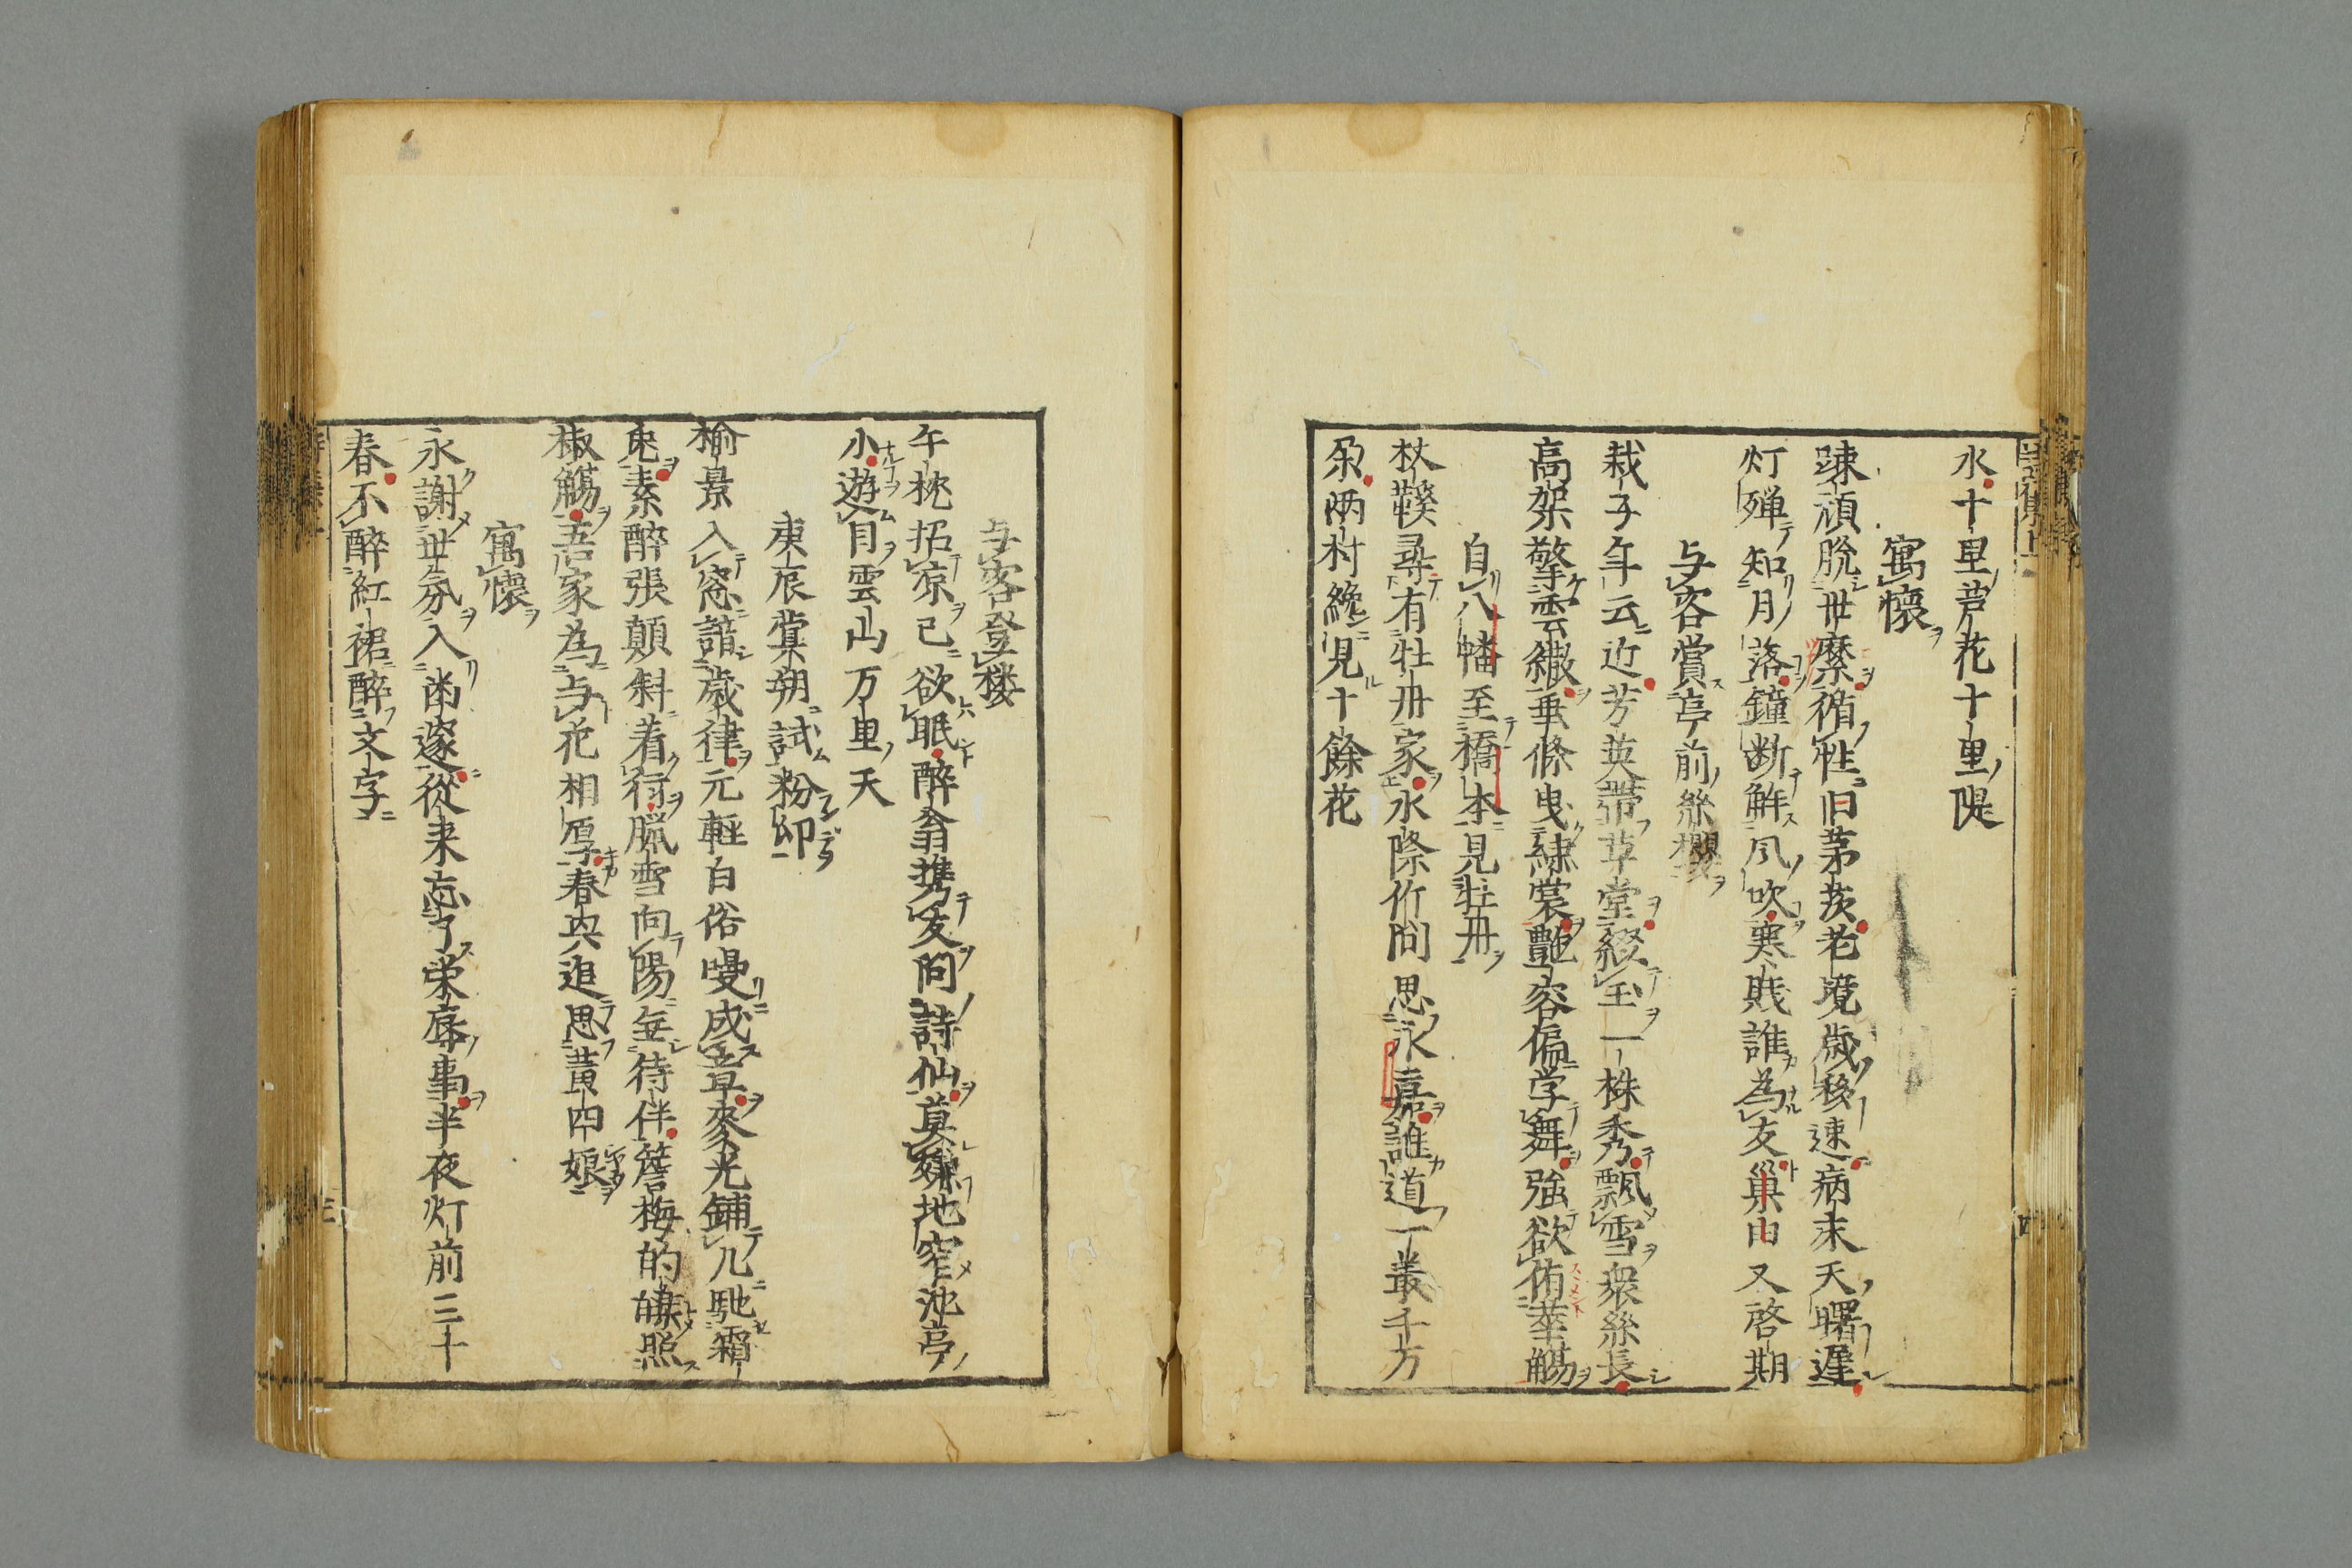 水十里芦花十里隄
寓懐
疎頑脱世縻循性旧茅茨老境歳移速病床天曙遅
灯殫知月落鐘断解风吹寒賤誰為友巣由又啓期
与客賞亭前絲櫻
栽子年云近芳英帶草堂綴玉一株秀飄雪衆絲長
高架擎雲繖垂條曳練裳艶容偏学舞強欲侑華觴
自八幡至橋本見牡丹
杖鞵尋有牡丹家水際竹間思永嘉誰道一叢千万
朶両村纔見十餘花
与客登楼
午枕招凉已欲眠醉翁携友問詩仙莫嫌地窄池亭
小遊目雲山万里天
庚辰蓂朔試粉卯
楡景入窓諳歳律元軽白俗嗄成章麥光鋪几馳霜
兔素醉張顛斜着行臘雪向陽無待伴簷梅的皪照
椒觴吾家為与花相厚春興追思黄四娘
寓懐
永謝世氛入凼邃從来忘了栄辱事半夜灯前三十
春不醉紅裙醉文字